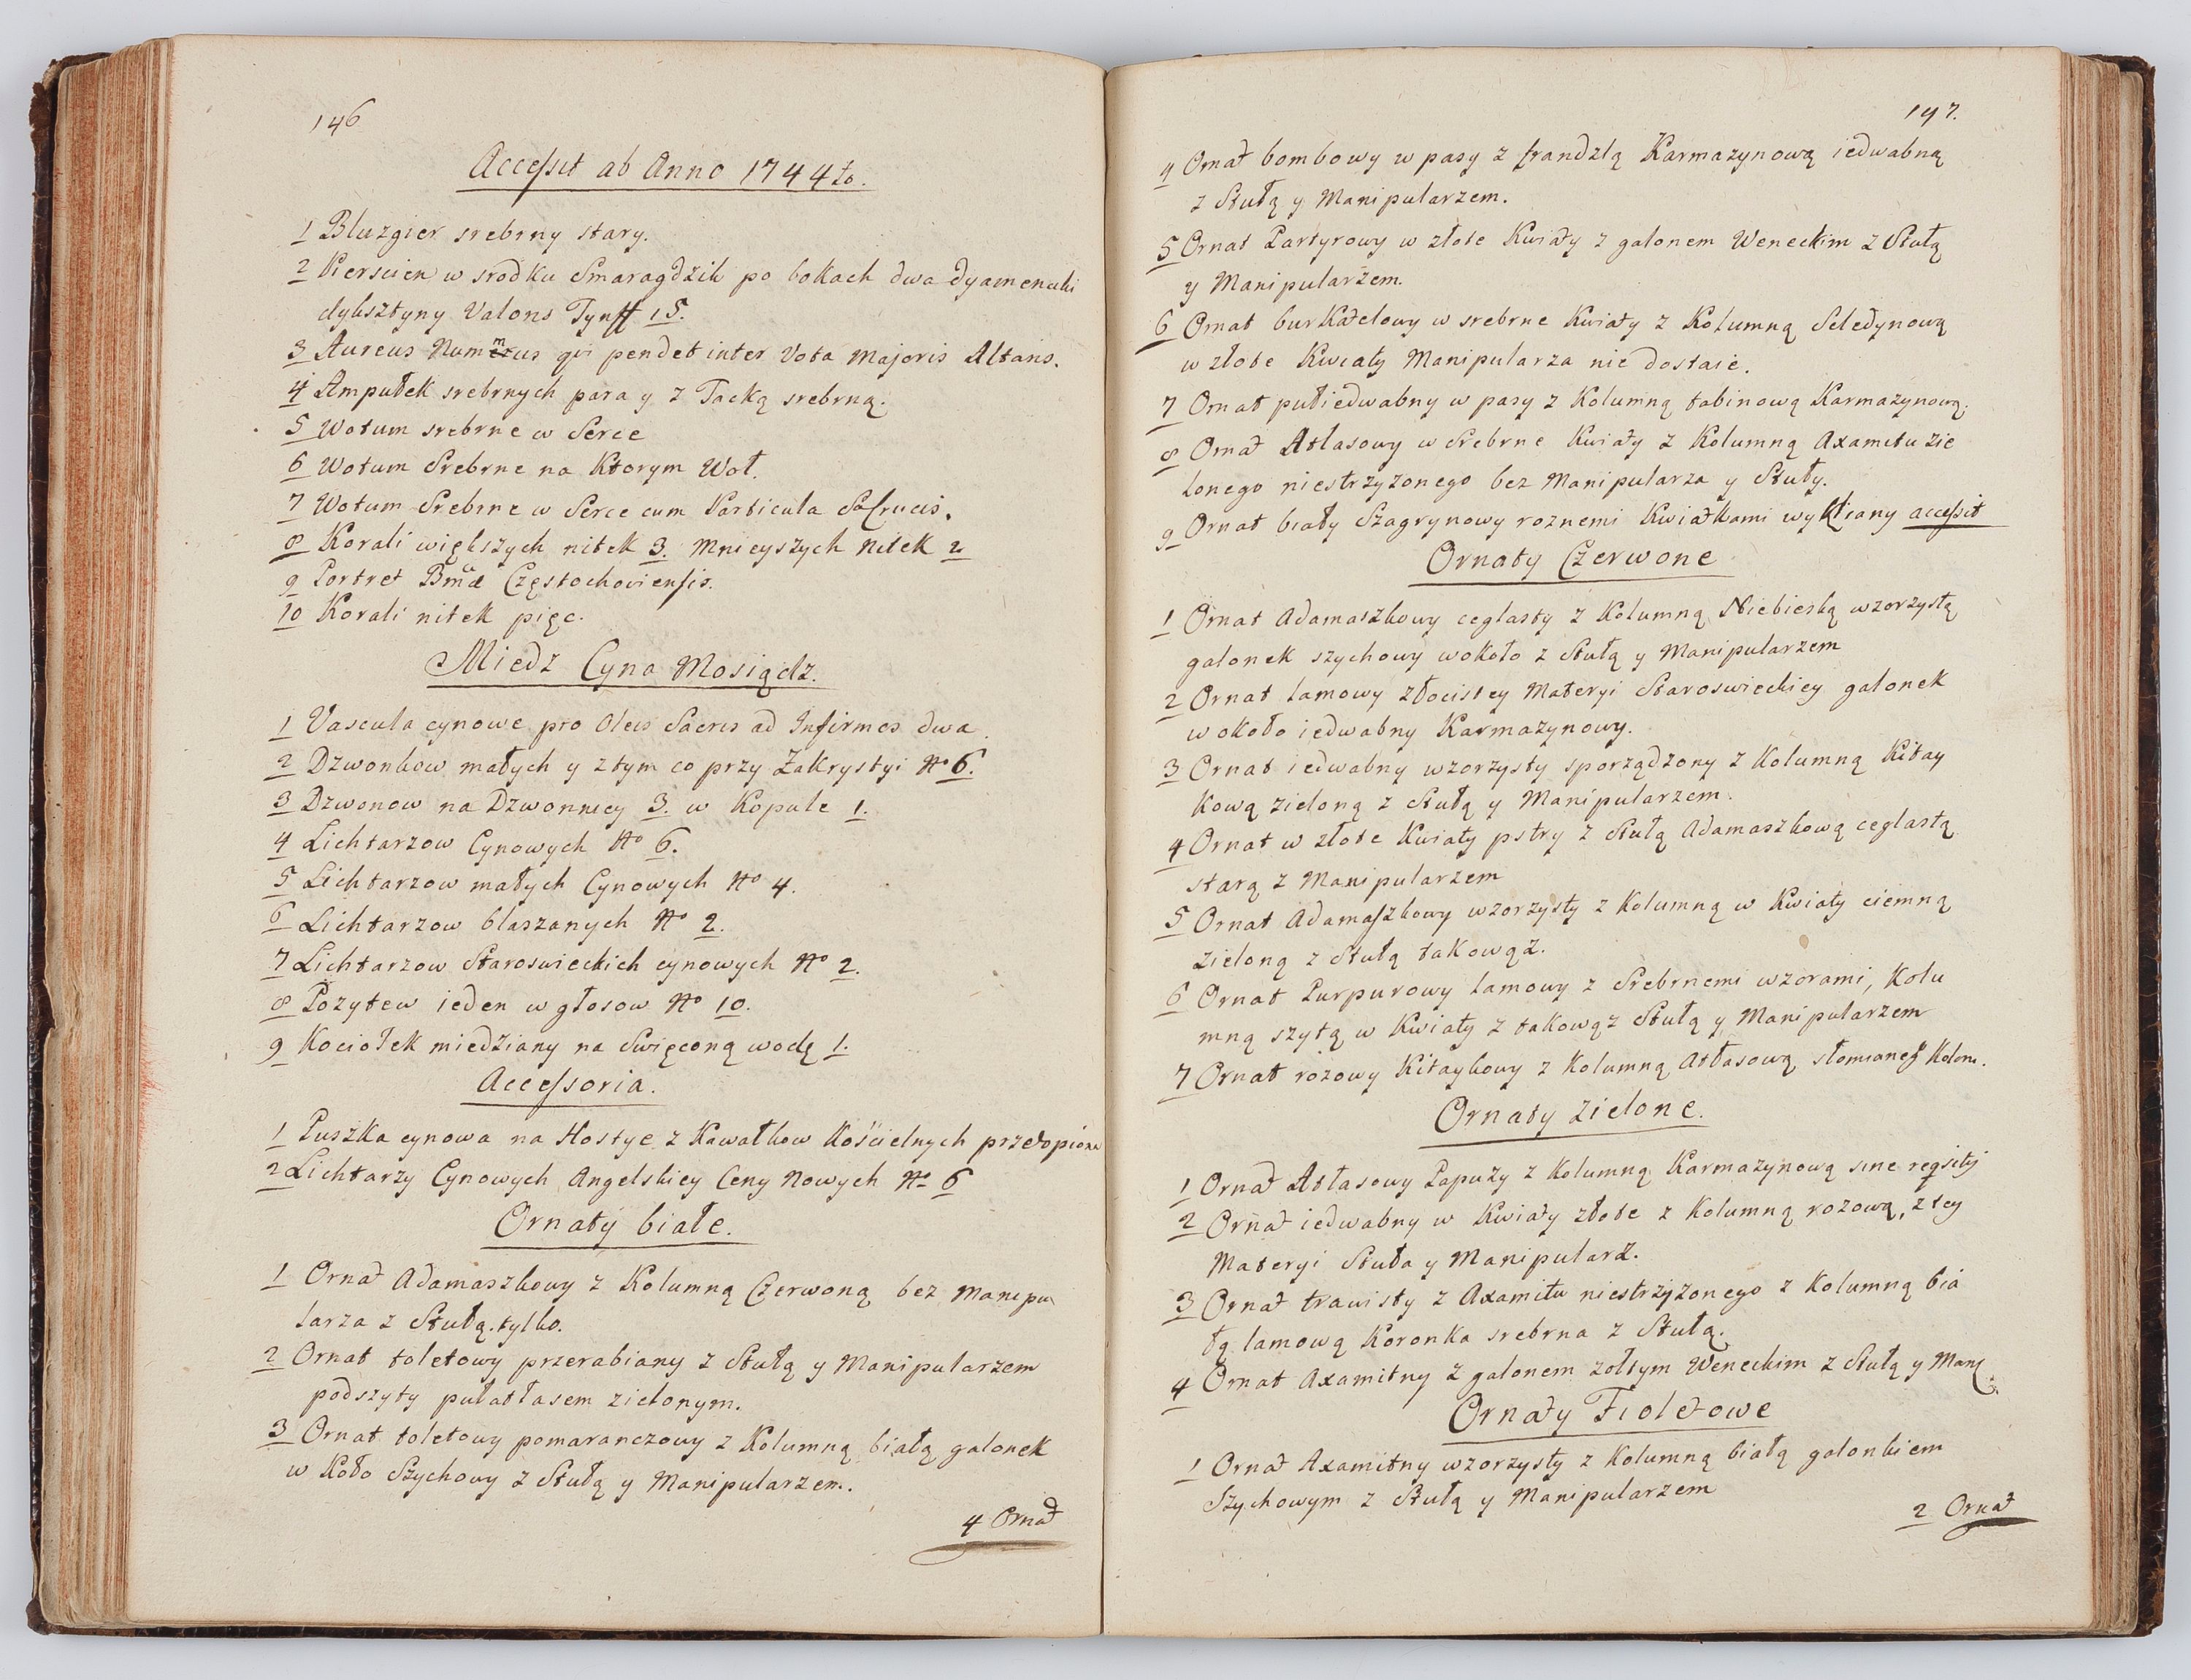 146
Accessit ab Anno 1744to.
1 Bluzgier srebrny stary.
2 Pierscien w srodku Smaragdzik po bokach dwa dyamenciki
dyksztyny Valoris Tynff 15.
3 Aureus Nummus qui pendet inter Vota Majoris Altaris.
4 Ampułek srebrnych para y z Tacką srebrną.
5 Wotum srebrne w Serce
6 Wotum Srebrne na Ktorym Woł.
7 Wotum Srebrne w Serce cum Particula S. Crucis.
8 Korali większych nitek 3. Mnieyszych Nitek 2
9 Portret Bmæ Częstochoviensis.
10 Korali nitek pięc.
Miedz Cyna Mosiądz.
1 Vascula cynowe pro Oleis Sacris ad Infirmos dwa.
2 Dzwonkow małych y z tym co przy Zakrystyi No 6.
3 Dzwonow na Dzwonnicy 3. w Kopule 1.
4 Lichtarzow Cynowych No 6.
5 Lichtarzow małych Cynowych No 4.
6 Lichtarzow blaszanych No 2.
7 Lichtarzow Staroswieckich cynowych No 2.
8 Pozytew ieden w głosow No 10.
9 Kociołek miedziany na Swięconą wodę 1.
Accessoria.
1 Puszka cynowa na Hostye z Kawałkow Kościelnych przetopiona
2 Lichtarzy Cynowych Angelskiey Ceny Nowych No 6
Ornaty białe.
1 Ornat Adamaszkowy z Kolumną Czerwoną bez Manipu
larza z Stułą tylko.
2 Ornat toletowy przerabiany z Stułą y Manipularzem
podszyty pułatłasem zielonym.
3 Ornat toletowy pomaranczowy z Kolumną białą galonek
w Koło Szychowy z Stułą y Manipularzem.
4 Ornat
147.
4 Ornat bombowy w pasy z frandzlą Karmazynową iedwabną
z Stułą y Manipularzem.
5 Ornat Partyrowy w złote Kwiaty z galonem Weneckim z Stułą
y Manipularzem.
6 Ornat burkatelowy w srebrne Kwiaty z Kolumną Seledynową
w złote Kwiaty Manipularza nie dostaie.
7 Ornat pułiedwabny w pasy z Kolumną tabinową Karmazynową.
8 Ornat Atlasowy w Srebrne Kwiaty z Kolumną Axamitu zie
lonego niestrzyzonego bez Manipularza y Stuły.
9 Ornat biały Szagrynowy roznemi Kwiatkami wytkany accessit
Ornaty Czerwone
1 Ornat Adamaszkowy ceglasty z Kolumną Niebieską wzorzystą
galonek szychowy wokoło z Stułą y Manipularzem
2 Ornat lamowy złocistey Materyi Staroswieckiey galonek
w około iedwabny Karmazynowy.
3 Ornat iedwabny wzorzysty sporządzony z Kolumną Kitay
kową zieloną z Stułą y Manipularzem.
4 Ornat w złote Kwiaty pstry z Stułą Adamaszkową ceglastą
starą z Manipularzem
5 Ornat Adamaszkowy wzorzysty z Kolumną w Kwiaty ciemną
zieloną z Stułą takowąz.
6 Ornat Purpurowy lamowy z Srebrnemi wzorami, Kolu
mną szytą w Kwiaty z takowąz Stułą y Manipularzem
7 Ornat rożowy Kitaykowy z Kolumną Atłasową słomianey Kolom.
Ornaty zielone.
1 Ornat Atłasowy Papuzy z Kolumną Karmazynową sine reqsitij
2 Ornat iedwabny w Kwiaty złote z Kolumną rozową, z tey
Materyi Stuła y Manipularz.
3 Ornat trawisty z Axamitu niestrzyzonego z Kolumną bia
łą lamową Koronka srebrna z Stułą.
4 Ornat Axamitny z galonem zołtym Weneckim z Stułą y Mani.
Ornaty Fioletowe
1 Ornat Axamitny wzorzysty z Kolumną białą galonkiem
Szychowym z Stułą y Manipularzem
2 Ornat